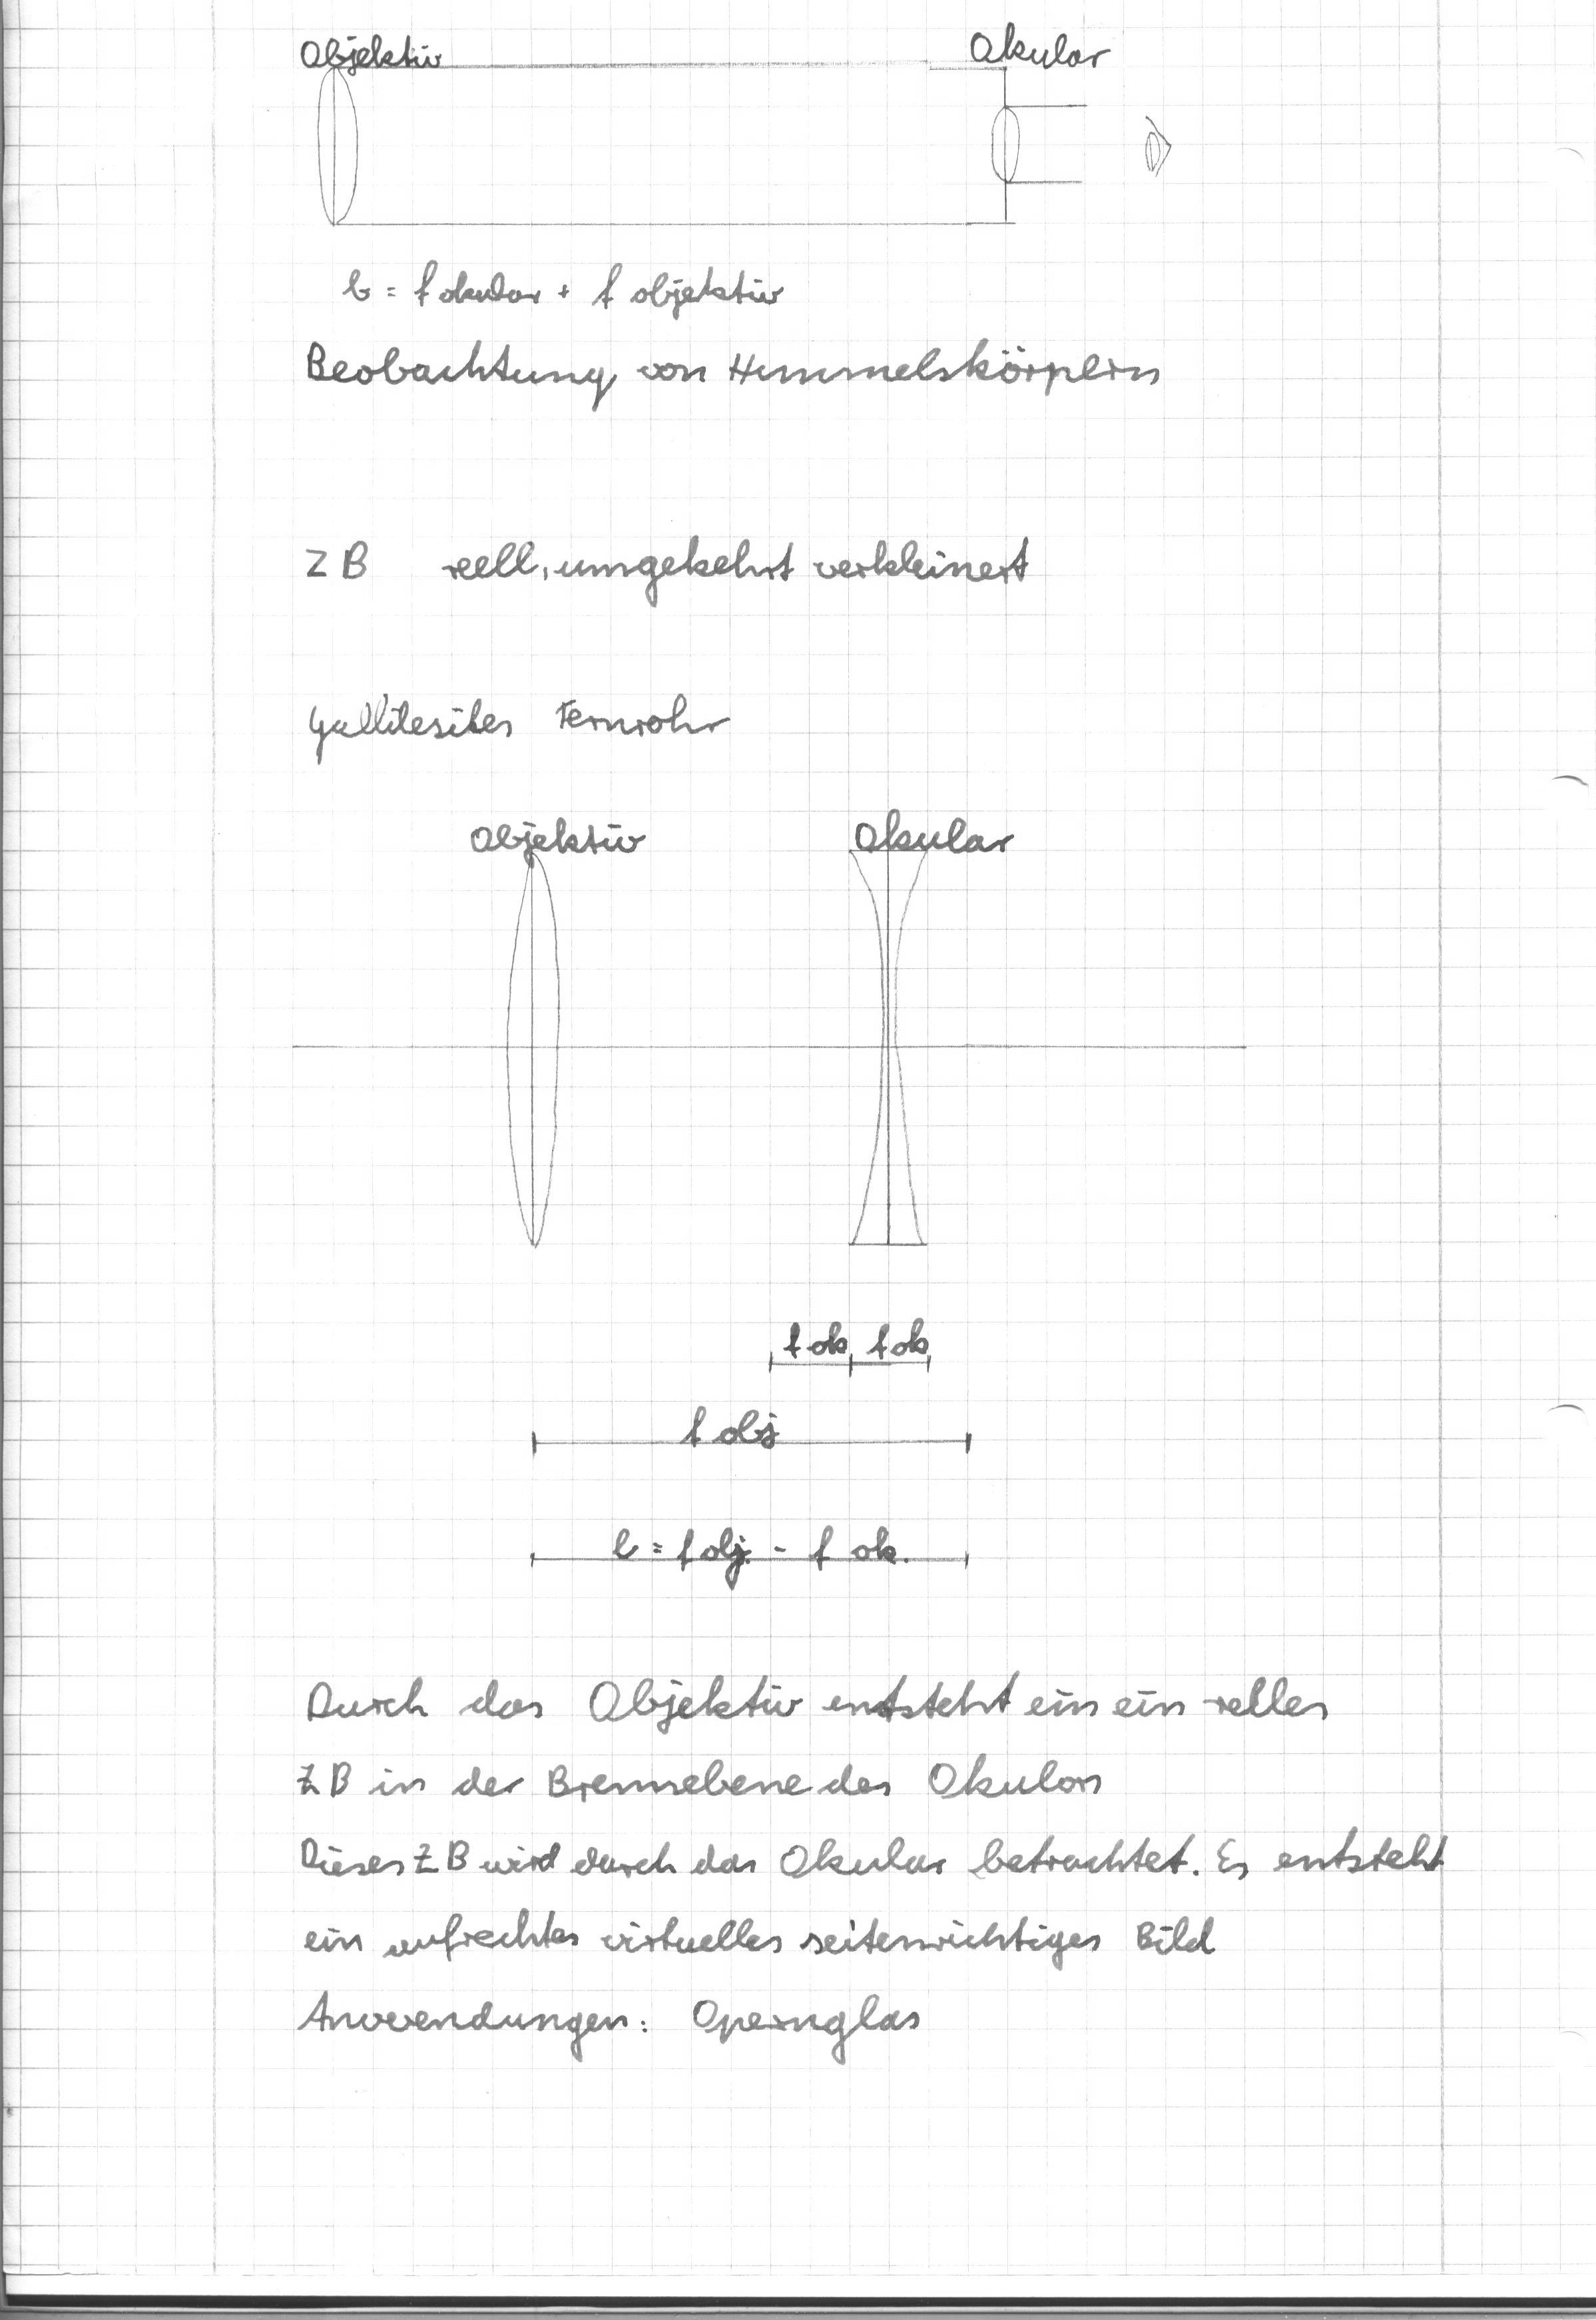 Objektiv Okular
l = f okular + f objektiv
Beobachtung von Himmelskörpern
ZB reell, umgekehrt verkleinert
Fernrohr
Objektiv Okular
f ok f ok
f obj
l = f obj. - f ok.
Durch das Objektiv entsteht ein ein relles
ZB in der Brennebene des Okulars
Dieses ZB wird durch das Okular betrachtet. Es entsteht
ein aufrechtes virtuelles seitenrichtiges Bild
Anwendungen: Opernglas